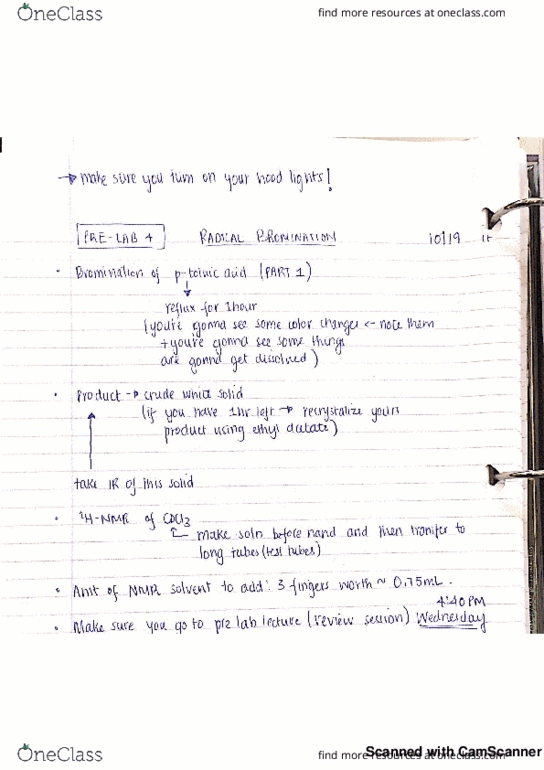 OneClass
find more resources at oneclass.com
→ make sure you turn on your hood lights!
PRE-LAB 4 RADICAL BROMINATION 10/19
• Bromination of p-toluic acid (PART 1)
reflux for 1 hour
(you're gonna see some color changes <- note them
+ you're gonna see some things
are gonna get dissolved)
• Product → crude white solid
(if you have 1hr left → recrystalize your
product using ethyl acetate)
take IR of this solid
• ¹H-NMR of CDCl3
make soln before hand and then transfer to
long tubes (test tubes)
• Amt of NMR solvent to add: 3 fingers worth ~ 0.75mL.
4:40 PM
• Make sure you go to pre lab lecture (review session) Wednesday
OneClass
find more resources at oneclass.com
Scanned with CamScanner